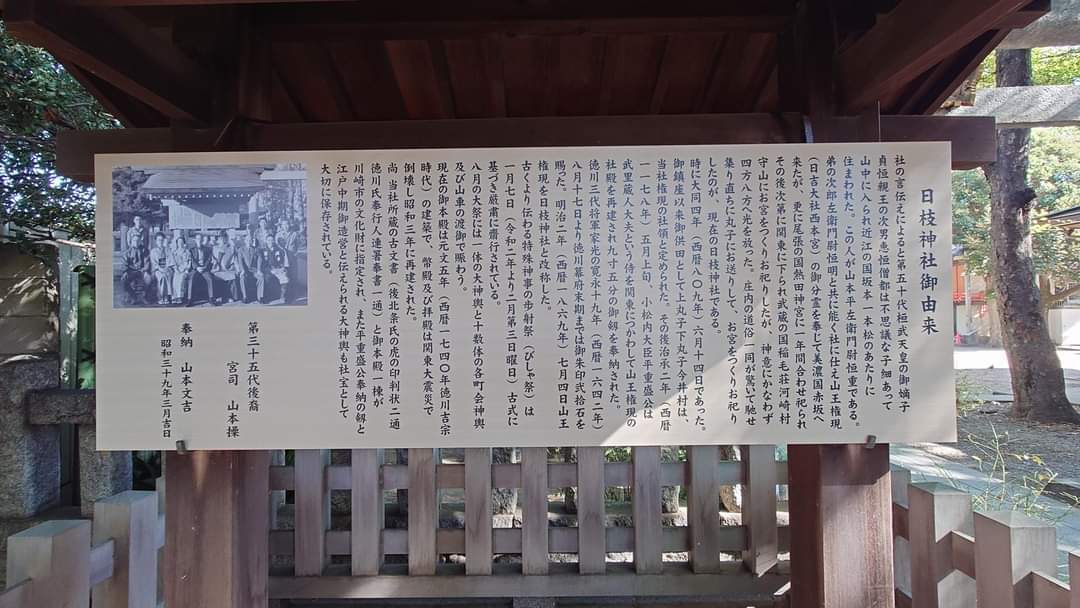 日枝神社御由来
社の言伝えによると第五十代桓武天皇の御嫡子
貞恒親王の次男恵恒僧都は不思議な子細あって
山中に入られ近江の国坂本一本松のあたりに
住まわれた。この人が山本平左衛門尉恒重である。
弟の次郎左衛門尉恒明と共に能く社に仕え山王権現
(日吉大社西本宮)の御分霊を奉じて美濃国赤坂へ
来たが、更に尾張の国熱田神宮に一年間合わせ祀られ
その後次第に関東に下られ武蔵の国稲毛荘河崎村
守山にお宮をつくりお祀りしたが、神意にかなわず
四方八方へ光を放った。庄内の道俗一同が驚いて馳せ
集り直ちに丸子にお送りして、お宮をつくりお祀り
したのが、現在の日枝神社である。
時に大同四年(西暦八〇九年)六月十四日であった。
御鎮座以来御供田として上丸子下丸子今井村は、
当社権現の社領と定められた。その後治承二年(西暦
一一七八年)五月上旬、小松内大臣平重盛公は
武里蔵人大夫という侍を関東につかわして山王権現の
社殿を再建され九寸五分の御剣を奉納された。
徳川三代将軍家光の寛永十九年(西暦一六四二年)
八月十七日より徳川幕府末期までは御朱印弐拾石を
賜った。明治二年(西暦一八六九年)七月四日山王
権現を日枝神社と改称した。
古くより伝わる特殊神事の歩射祭(びしゃ祭)は
一月七日(令和二年より二月第三日曜日)古式に
基づき厳粛に斎行されている。
八月の大祭には一体の大神輿と十数体の各町会神輿
及び山車の渡御で賑わう。
現在の御本殿は元文五年(西暦一七四〇年徳川吉宗
時代)の建築で、幣殿及び拝殿は関東大震災で
倒壊し昭和三年に再建された。
尚、当社所蔵の古文書(後北条氏の虎の印判状二通
徳川氏奉行人連署奉書一通)と御本殿一棟が
川崎市の文化財に指定され、また平重盛公奉納の剣と
江戸中期御造営と伝えられる大神輿も社宝として
大切に保存されている。
第三十五代後裔
宮司 山本操
奉納 山本文吉
昭和三十九年三月吉日